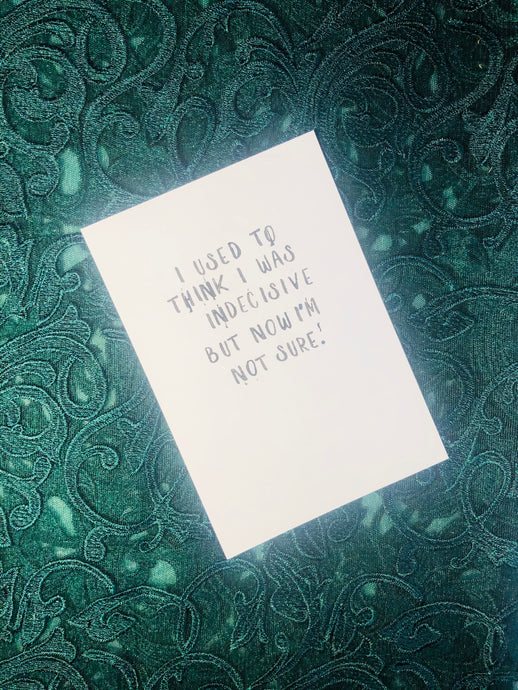 I USED TO
THINK I WAS
INDECISIVE
BUT NOW I'M
NOT SURE!